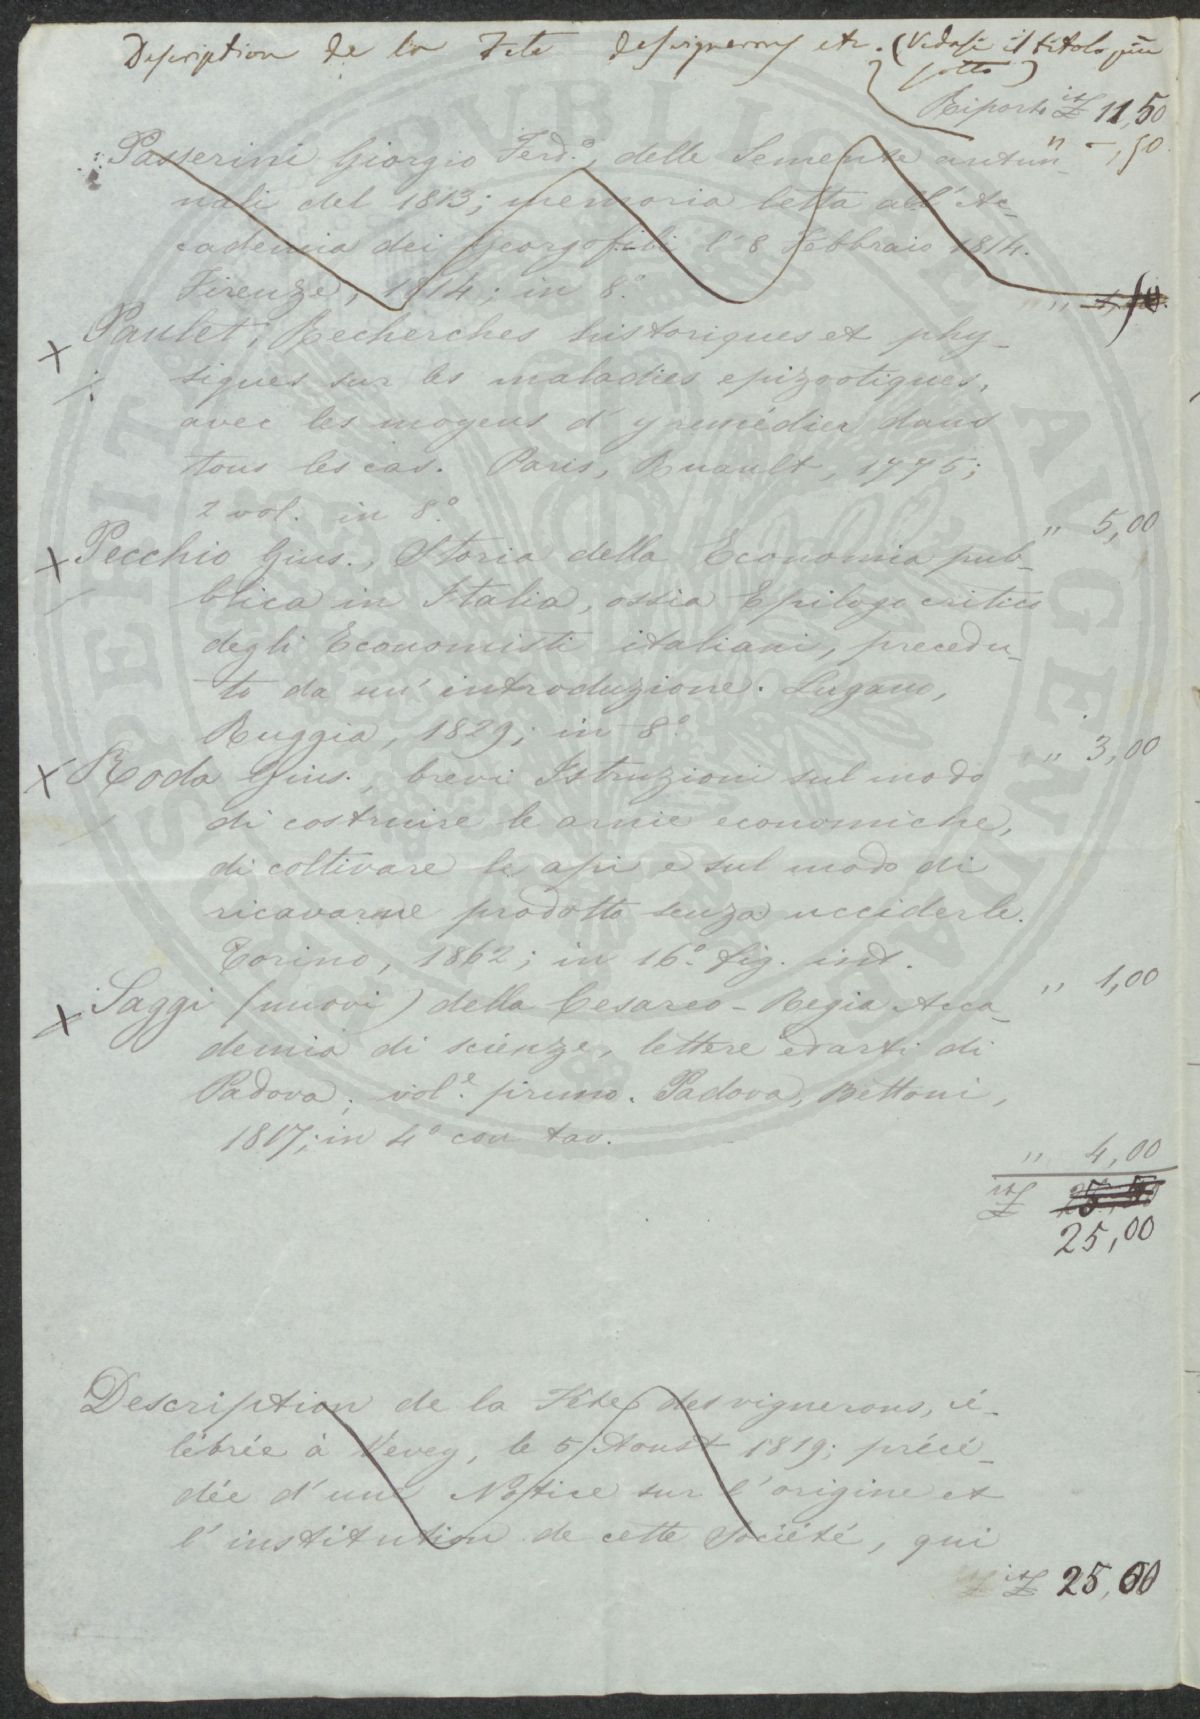 Description de la Fête desvignerons etc. (Vedasi il titolo più
sotto)
Riporto it £ 11,50
Passerini Giorgio Ferd.º, delle Semente autun- " -,50
nali del 1813; memoria letta all'Ac-
cademia dei Georgofili l'8 Febbraio 1814.
Firenze, 1814; in 8.º "
Paulet, Recherches historiques et phy-
siques sur les maladies epizootiques,
avec les moyens d'y remédier dans
tous les cas. Paris, Ruault, 1775;
2 vol. in 8.º " 5,00
Pecchio Gius., Storia della Economia pub-
blica in Italia, ossia Epilogo critico
degli Economisti italiani, precedu-
to da un'introduzione. Lugano,
Ruggia, 1829; in 8.º " 3,00
Roda Gius., brevi Istruzioni sul modo
di costruire le arnie economiche,
di coltivare le api e sul modo di
ricavarne prodotto senza ucciderle.
Torino, 1862; in 16.º fig. int. " 1,00
Saggi (nuovi) della Cesareo-Regia Acca-
demia di scienze, lettere ed arti di
Padova; vol.e primo. Padova, Bettoni,
1817; in 4.º con tav. " 4,00
it £ 25,50
25,00
Description de la Fête des vignerons, cé-
lébrée à Vevey, le 5 Aoust 1819; précé-
dée d'une Notice sur l'origine et
l'institution de cette Société, qui
it £ 25,00
PROSPERITATI PUBLICAE AVGENDAE